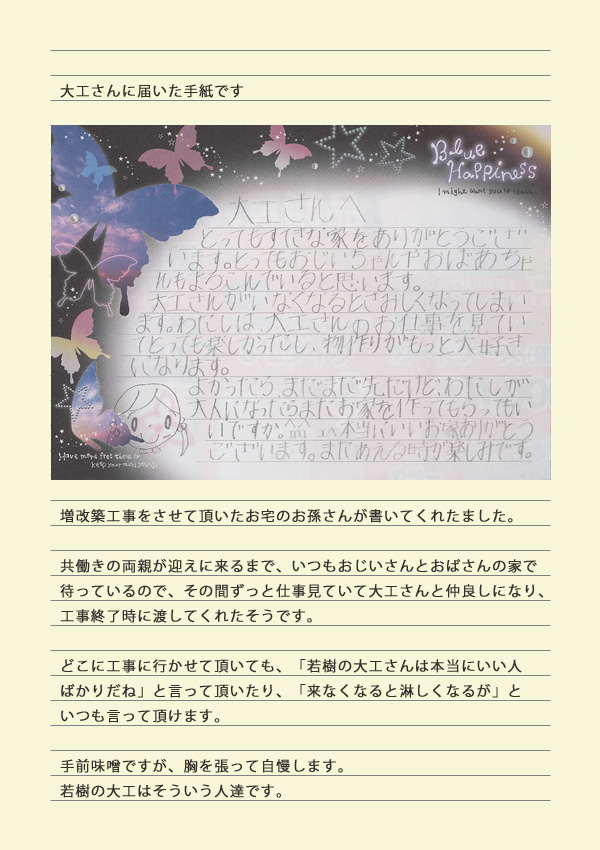 大工さんに届いた手紙です
Blue
Happiness
I might want you to teach...
大工さんへ
とってもすてきな家をありがとうござ
います。とってもおじいちゃんやおばあちゃ
んもよろこんでいると思います。
大工さんがいなくなるとさみしくなってしまい
ます。わたしは、大工さんのお仕事を見てい
てとっても楽しかったし、物作りがもっと大好き
になります。
よかったら、まだまだ先だけど、わたしが
大人になったらまたお家を作ってもらってもい
いですか。本当にいいお家ありがとう
ございます。またあえる時が楽しみです。
Have more free time to
keep your mind young.
増改築工事をさせて頂いたお宅のお孫さんが書いてくれたました。
共働きの両親が迎えに来るまで、いつもおじいさんとおばさんの家で
待っているので、その間ずっと仕事見ていて大工さんと仲良しになり、
工事終了時に渡してくれたそうです。
どこに工事に行かせて頂いても、「若樹の大工さんは本当にいい人
ばかりだね」と言って頂いたり、「来なくなると淋しくなるが」と
いつも言って頂けます。
手前味噌ですが、胸を張って自慢します。
若樹の大工はそういう人達です。